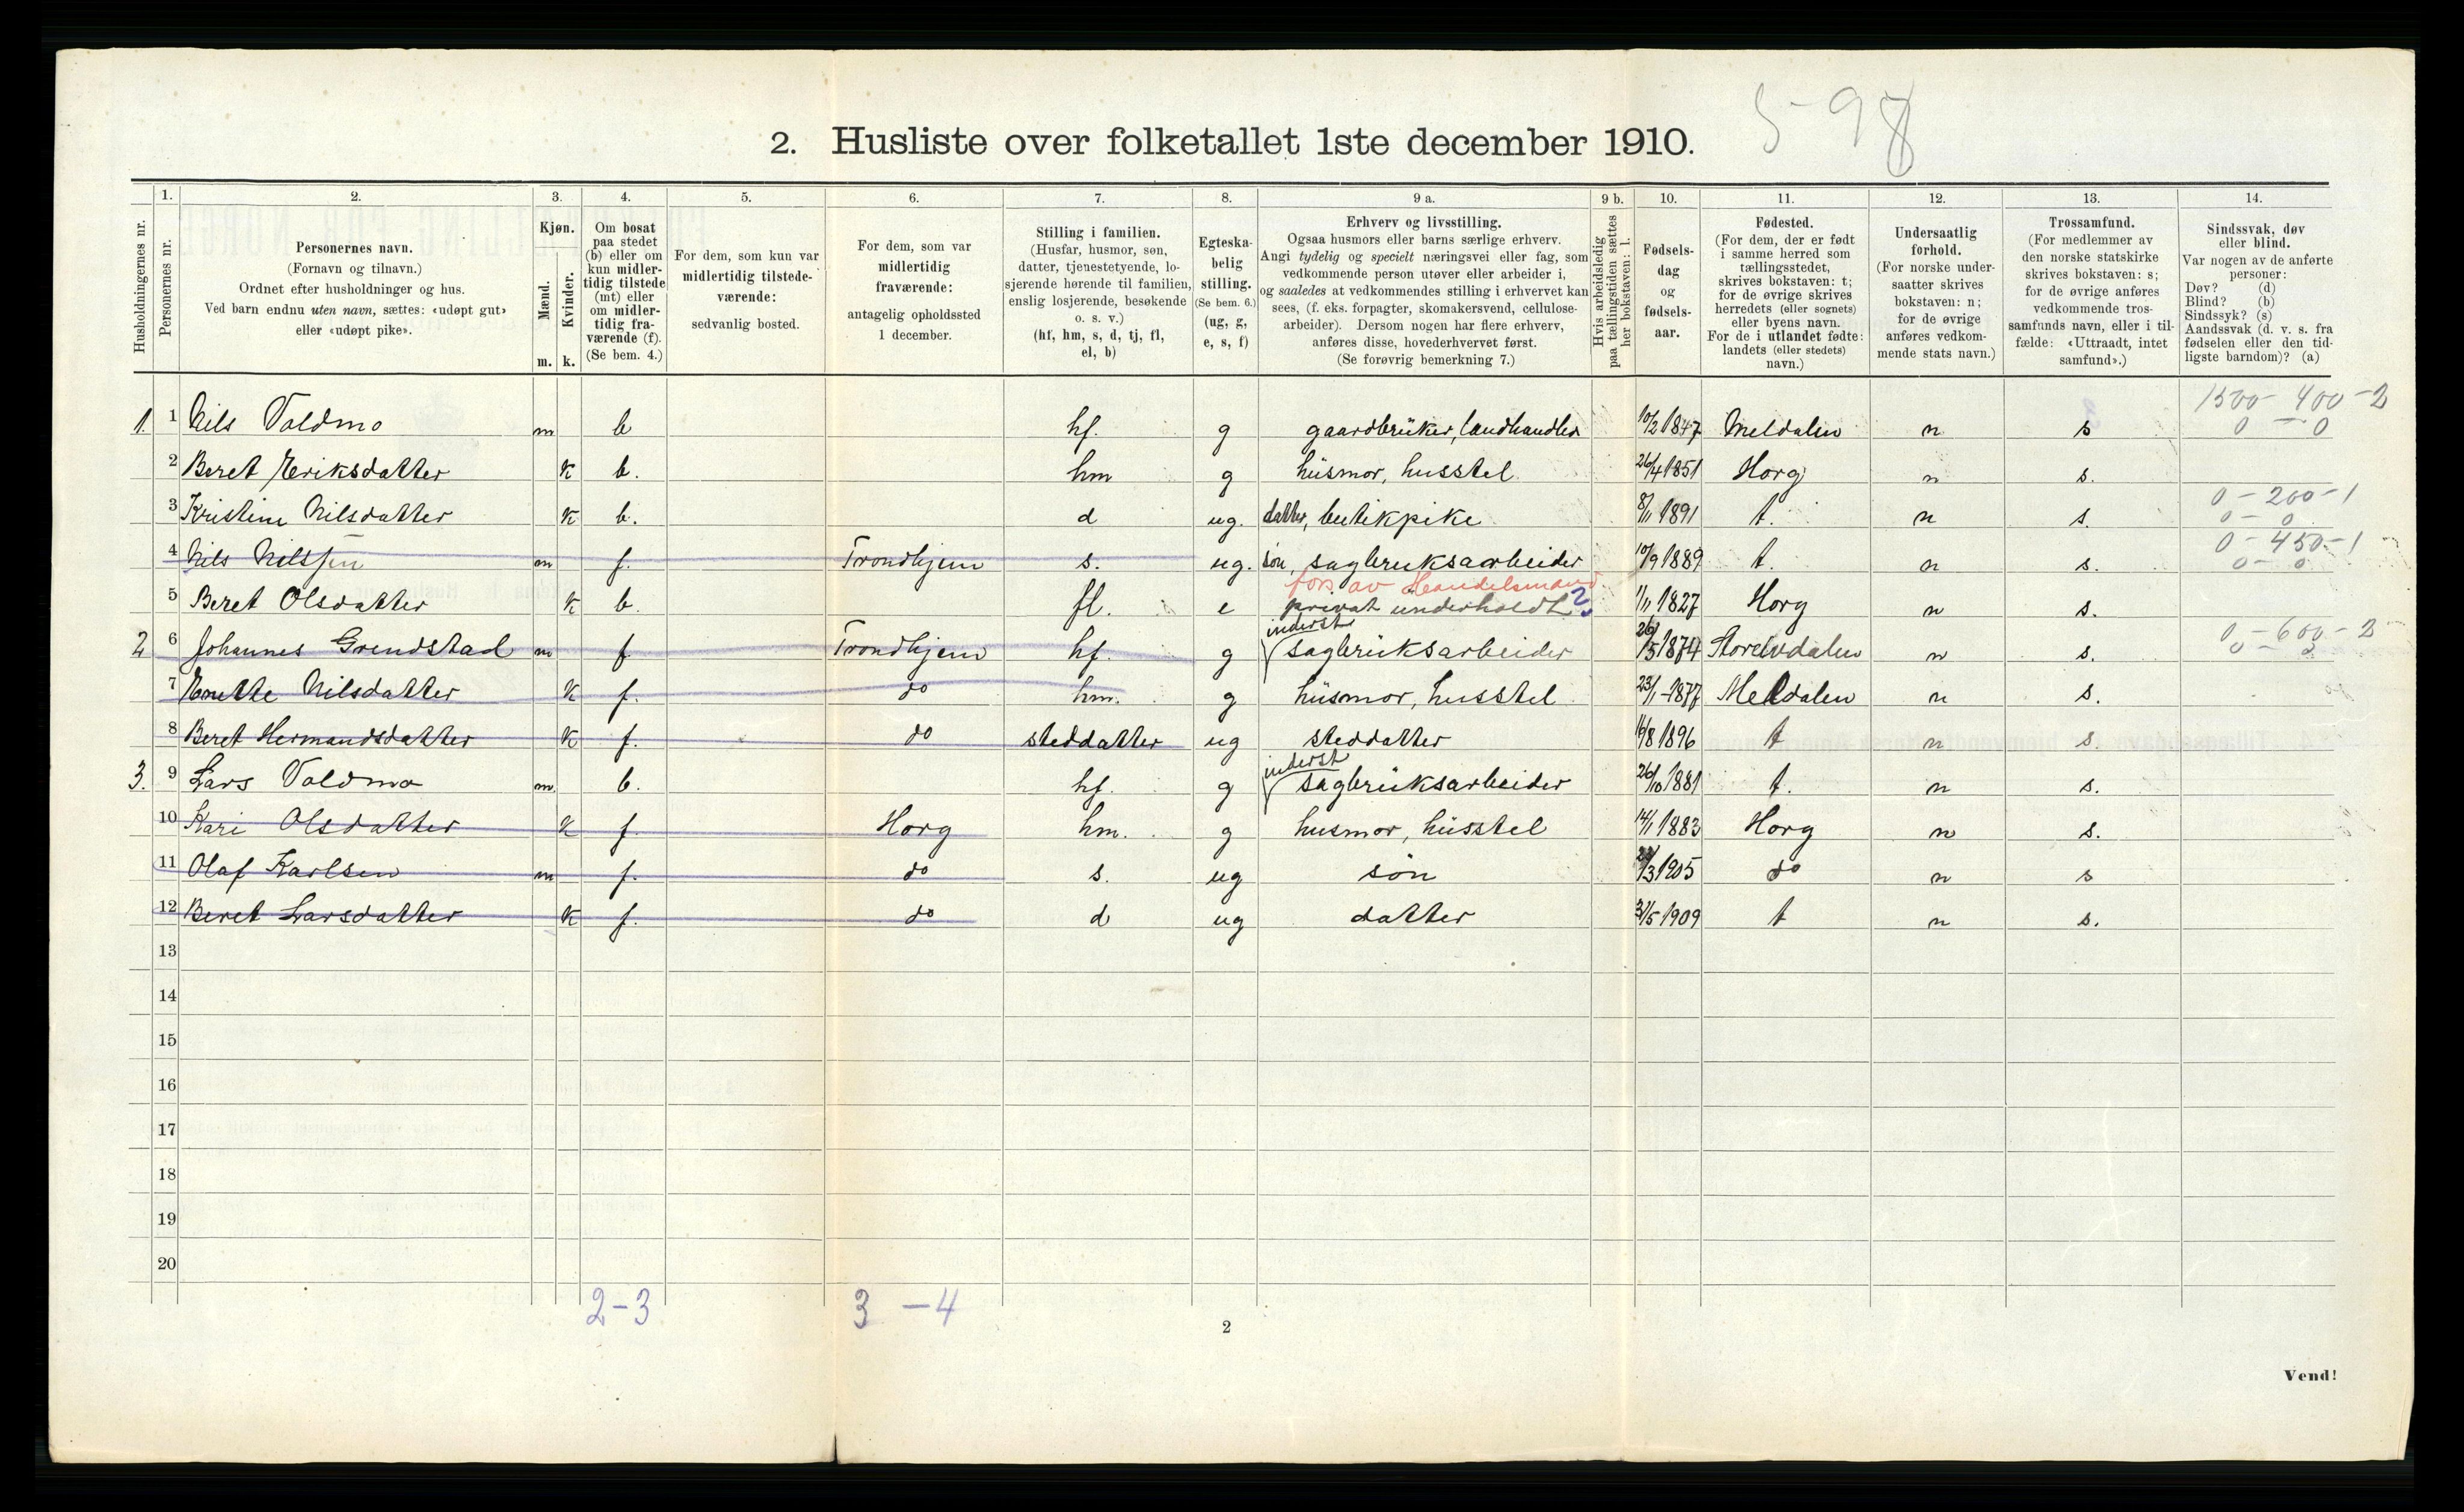 5-98
2. Husliste over folketallet 1ste december 1910.
1. 2. 3. 4. 5. 6. 7. 8. 9 a. 9 b. 10. 11. 12. 13. 14.
Husholdningernes nr.
Personernes nr.
Personernes navn.
(Fornavn og tilnavn.)
Ordnet efter husholdninger og hus.
Ved barn endnu uten navn, sættes: «udøpt gut»
eller «udøpt pike».
Kjøn.
Mænd.
Kvinder.
m. k.
Om bosat
paa stedet
(b) eller om
kun midler-
tidig tilstede
(mt) eller
om midler-
tidig fra-
værende (f).
(Se bem. 4.)
For dem, som kun var
midlertidig tilstede-
værende:
sedvanlig bosted.
For dem, som var
midlertidig
fraværende:
antagelig opholdssted
1 december.
Stilling i familien.
(Husfar, husmor, søn,
datter, tjenestetyende, lo-
sjerende hørende til familien,
enslig losjerende, besøkende
o. s. v.)
(hf, hm, s, d, tj, fl,
el, b)
Egteska-
belig
stilling.
(Se bem. 6.)
(ug, g,
e, s, f)
Erhverv og livsstilling.
Ogsaa husmors eller barns særlige erhverv.
Angi tydelig og specielt næringsvei eller fag, som
vedkommende person utøver eller arbeider i,
og saaledes at vedkommendes stilling i erhvervet kan
sees, (f. eks. forpagter, skomakersvend, cellulose-
arbeider). Dersom nogen har flere erhverv,
anføres disse, hovederhvervet først.
(Se forøvrig bemerkning 7.)
Hvis arbeidsledig
paa tællingstiden sættes
her bokstaven: l.
Fødsels-
dag
og
fødsels-
aar.
Fødested.
(For dem, der er født
i samme herred som
tællingsstedet,
skrives bokstaven: t;
for de øvrige skrives
herredets (eller sognets)
eller byens navn.
For de i utlandet fødte:
landets (eller stedets)
navn.)
Undersaatlig
forhold.
(For norske under-
saatter skrives
bokstaven: n;
for de øvrige
anføres vedkom-
mende stats navn.)
Trossamfund.
(For medlemmer av
den norske statskirke
skrives bokstaven: s;
for de øvrige anføres
vedkommende tros-
samfunds navn, eller i til-
fælde: «Uttraadt, intet
samfund».)
Sindssvak, døv
eller blind.
Var nogen av de anførte
personer:
Døv? (d)
Blind? (b)
Sindssyk? (s)
Aandssvak (d. v. s. fra
fødselen eller den tid-
ligste barndom)? (a)
1500-400-2
1. 1 Nils Voldmo m b hf. g gaardbruker, landhandler 10/2 1847 Meldalen n s 0 - 0
2 Beret Eriksdatter k b. hm g husmor, husstel 26/4 1851 Horg n s.
0-200-1
3 Kristine Nilsdatter k b. d ug. datter, butikpike 8/11 1891 t. n s. 0-0
0-450-1
4 Nils Nilssen m f. Trondhjem s. ug. søn, sagbruksarbeider 10/9 1889 t. n s. 0-0
fors av Handelsmand
5 Beret Olsdatter k b. fl. e privat underholdt ? 1/11 1827 Horg n s.
inderst
0-600-2
2 6 Johannes Grendstad m f Trondhjem hf. g sagbruksarbeider 26/5 1874 Storelvdalen n s.
7 Emette Nilsdatter k f. do hm. g husmor, husstel 23/1-1877 Meldalen n s.
8 Beret Hermandsdatter k f. do steddatter ug steddatter 16/8 1896 t n s.
inderst
3. 9 Lars Voldmo m b. hf. g sagbruksarbeider 26/10 1881 t. n s.
10 Kari Olsdatter k f. Horg hm. g husmor, husstel 14/1 1883 Horg n s.
11 Olaf Karlsen m f. do s. ug søn /3 1905 do n s
12 Beret Larsdatter k f. do d ug datter 31/5 1909 t n s.
13
14
15
16
17
18
19
20
2-3 3-4
2
Vend!